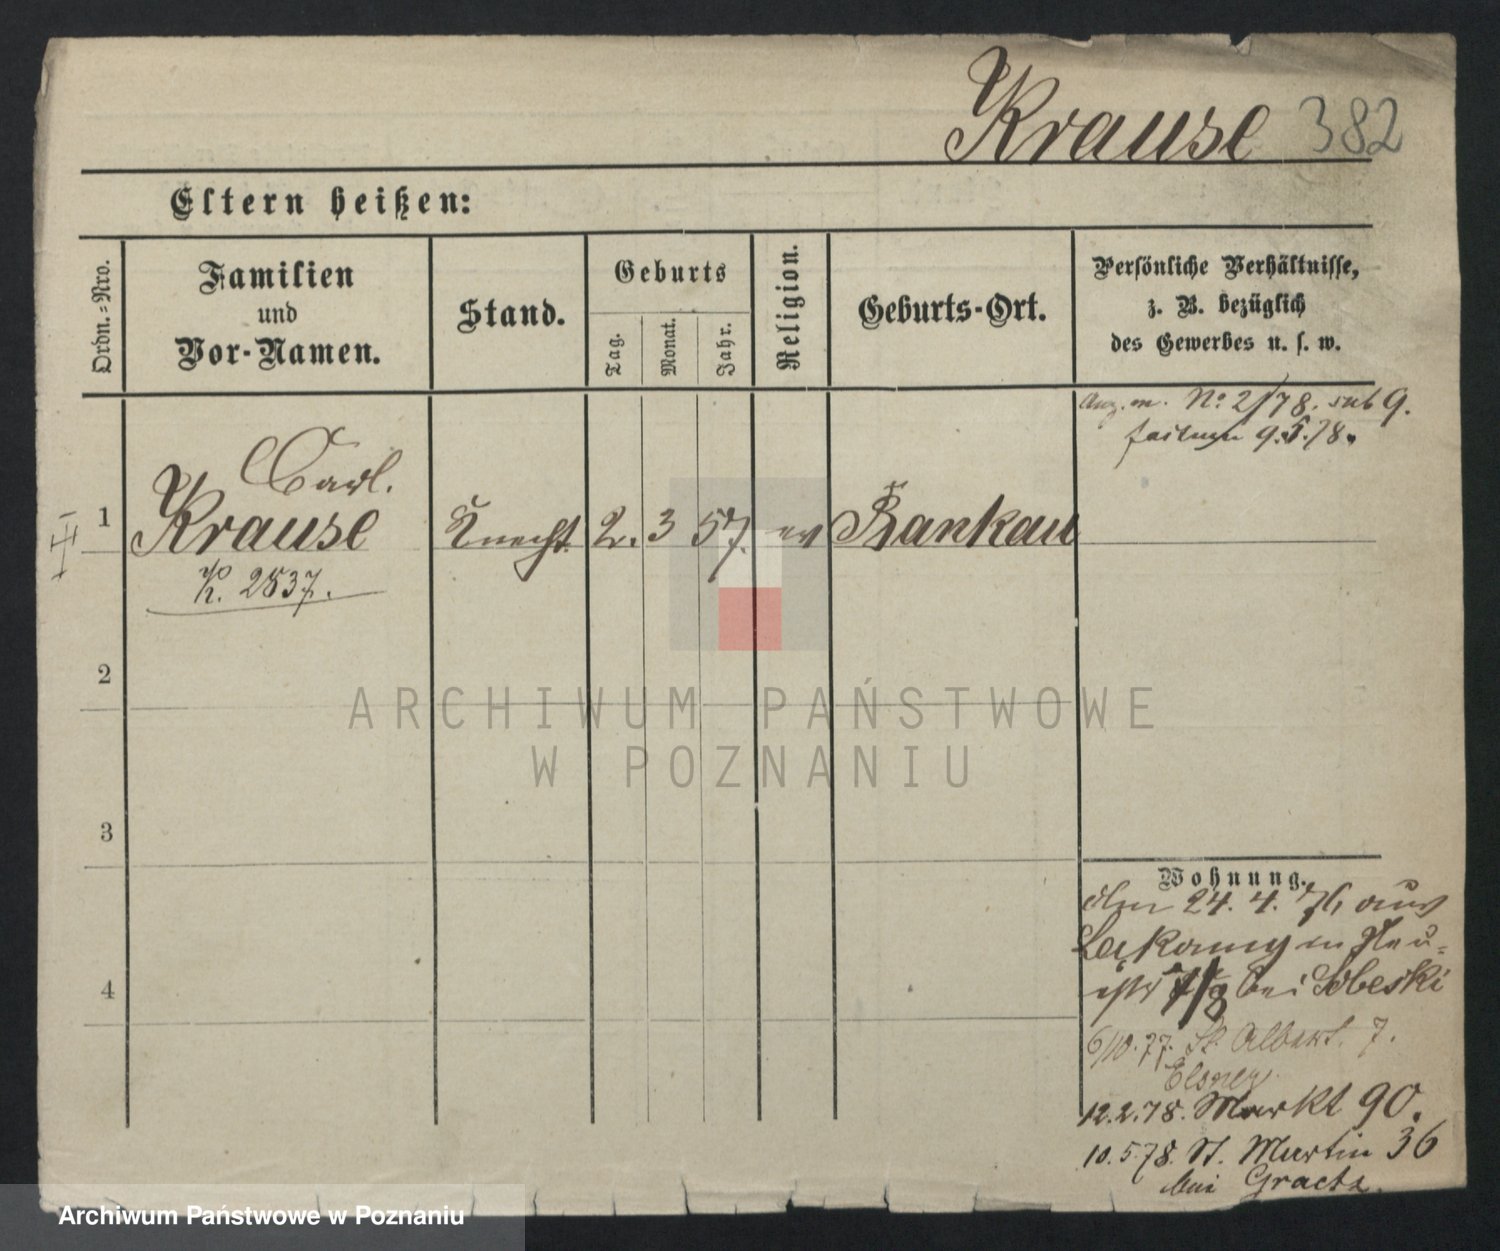 Krause 382
Eltern heißen:
Ordn.-Nro.
Familien
und
Vor-Namen.
Stand.
Geburts
Tag.
Monat.
Jahr.
Religion.
Geburts-Ort.
Persönliche Verhältnisse,
z. B. bezüglich
des Gewerbes u. s. w.
No 2/78. sub 9.
9.5.78.
Carl.
1 Krause Knecht 2. 3 57. ev Bankau
K. 2837.
2
3
4
Wohnung.
den 24. 4. 76 aus
in Neu-
bei Sobeski
6/10.77. St. Albert. 7.
Elsner
12.2.78. Markt 90.
10.5.78. St. Martin 36
bei Graetz.
ARCHIWUM PAŃSTWOWE
W POZNANIU
Archiwum Państwowe w Poznaniu